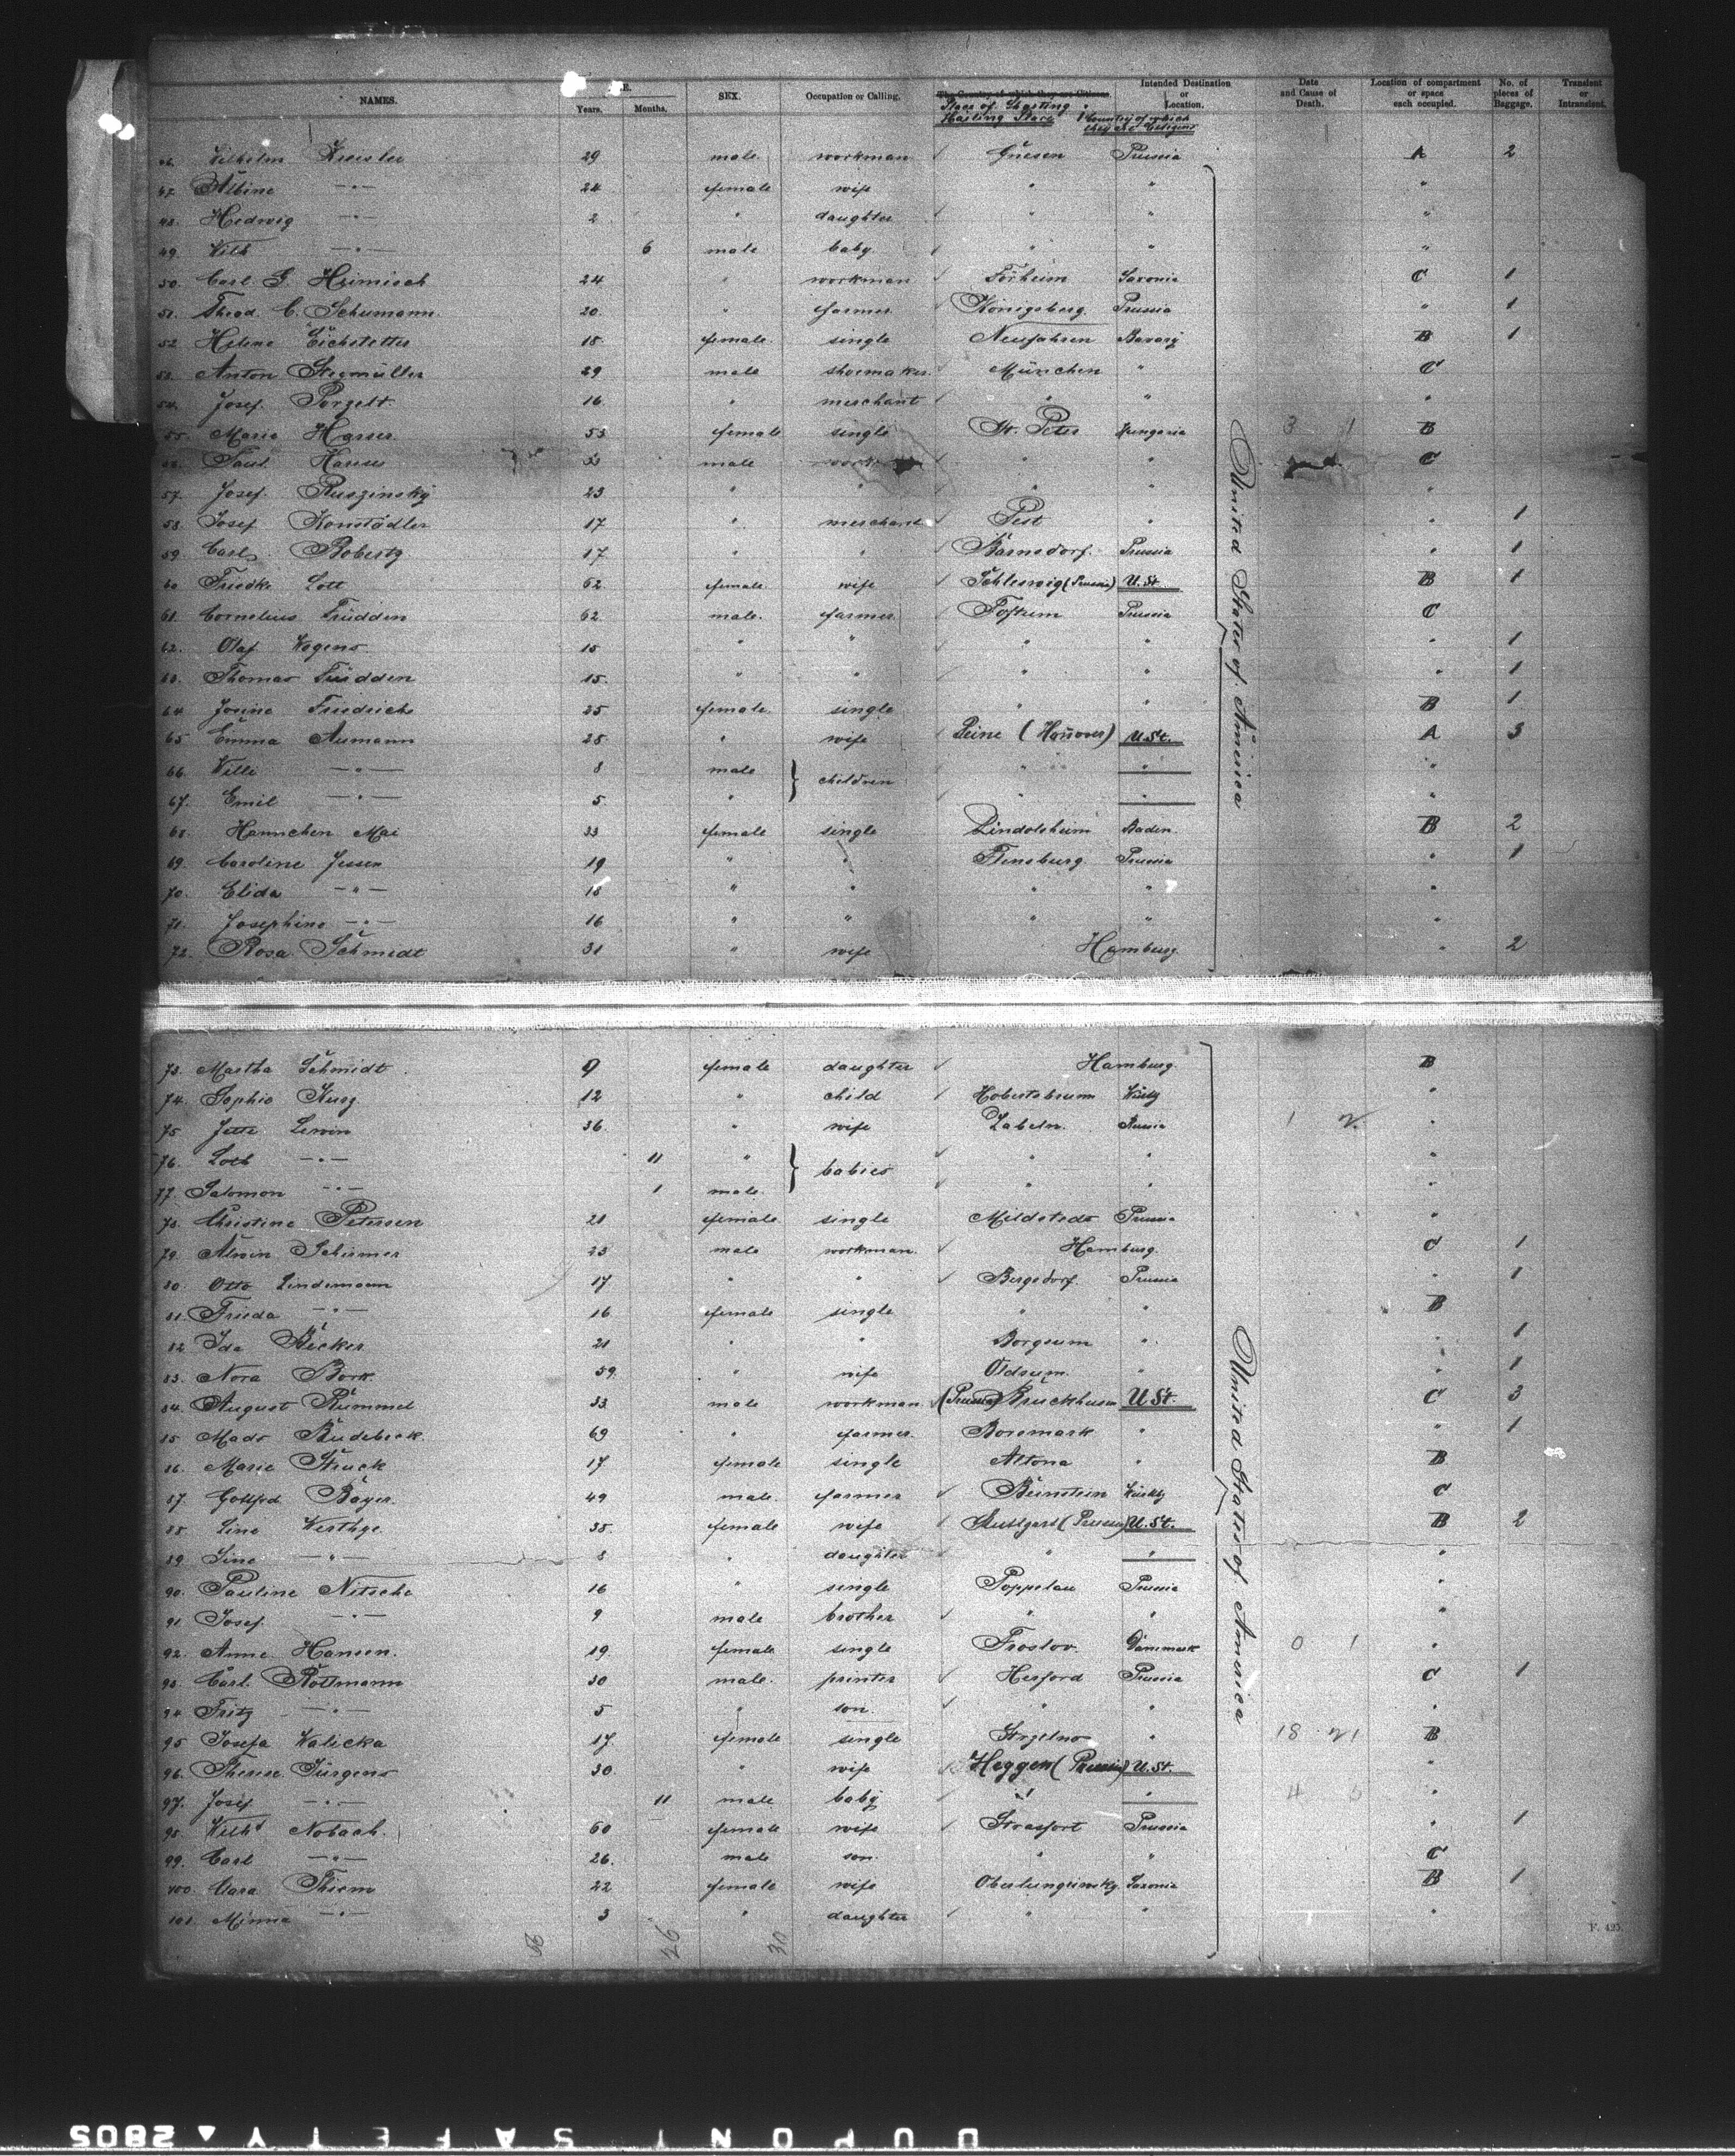 NAMES. Years. Months. SEX. Occupation or Calling. The Country of which they are Citizens. Intended Destination or Location. Date and Cause of Death. Location of compartment or space each occupied. No. of pieces of Baggage. Transient or Intransient.
Place of Starting. Country of which they are Citizens
46. Wilhelm Kreisler 29 male workman Güesen Prussia A 2
47. Albine —"— 24 female wife " " "
48. Hedwig —"— 2 " daughter " " "
49. Wilh —"— 6 male baby " " "
50. Carl G. Heimisch 24 " workman Saxonia C 1
51. Theod. C. Schumann 20. " farmer Königsberg Prussia " 1
52 Helene Eichstetter 18 female single Neufahren Bavary B 1
53. Anton Stegmüller 29 male shoemaker München " C
54. Josef Porzelt 16 " merchant " " "
55. Maria Harrer 53 female single St. Peter Hungaria 3 1 B
56. Paul Harrer male " " C
57. Josef Ruszinsky 23 " " " " "
58. Josef Konstädler 17 " merchant Pest " " 1
59. Carl Robertz 17 " " Barnsdorf Prussia " 1
60 Friedke Lott 62 female wife Schleswig (Prussia) U.St. B 1
61. Cornelius Früdden 62 male. farmer Toftum Prussia C
62. Olaf Wogens 15 " " " " " 1
63. Thomas Früdden 15. " " " " " 1
64 Josine Friedrichs 25 female single " " B 1
65 Emma Aumann 28 " wife Peine (Hannover) U.St. A 3
66. Willi —"— 8 male } children " " "
67. Emil —"— 5 " " " "
68. Hannchen Mai 33 female single Lindolsheim Baden B 2
69. Caroline Jessen 19 " " Flensburg Prussia " 1
70. Elida —"— 18 " " " " "
71. Josephine —"— 16 " " " " "
72. Rosa Schmidt 31 " wife Hamburg " 2
United States of America
73. Martha Schmidt 9 female daughter Hamburg B
74. Sophie Kurz 12 " child Hobertsbrunn Württbg "
75 Jette Lewin 36. " wife Zabeln. Russia 1 2 "
76. —"— 11 " } babies " " "
77. Salomon —"— 1 male " " "
78. Christine Petersen 21 female single Mildstedt Prussia "
79. Alwin Schirmer 23 male workman Hamburg. C 1
80. Otto Lindemann 17 " " Bergedorf Prussia " 1
81. Frieda —"— 16 female single " " B
82 Ida Becker 21 " " Borgsum " " 1
83. Nora Bork 59. " wife Oldsum. " " 1
84. August Rummel 33 male workman (Prussia) Bruckhusen U St. C 3
85 Mads Budebeck. 69 " farmer. " " 1
86. Marie Struck 17 female single Altona " B
87. Gottfied Bayer. 49 male. farmer Beinstein Württbg C
88. Line Werthge 35. female wife Stuttgart (Prussia) U.St. B 2
89. Line —"— 8 " daughter " " "
90. Pauline Nitsche 16 " single Poppelau Prussia "
91. Josef —"— 9 male brother " " "
92. Anne Hansen. 19. female single Froslov. Dänemark 0 1 "
93. Carl Rottmann 30 male. printer Herford Prussia C 1
94 Fritz —"— 5 " son. " " "
95 Josefa Walicka 17. female single Strzelno " 18 21 B
96. Therese Jürgens 30. " wife Heggen (Prussia) U.St. "
97. Josef —"— 11 male baby " " 4 "
98. Nobach. 60 female wife Prussia " 1
99. Carl —"— 26. male son. " " C
100. Clara Thiem 22 female wife Oberlungwitz Saxonia B 1
101. Minna —"— 3 " daughter " " "
United States of America
26 30
F. 425.
DUPONT SAFETY ▲ 2805